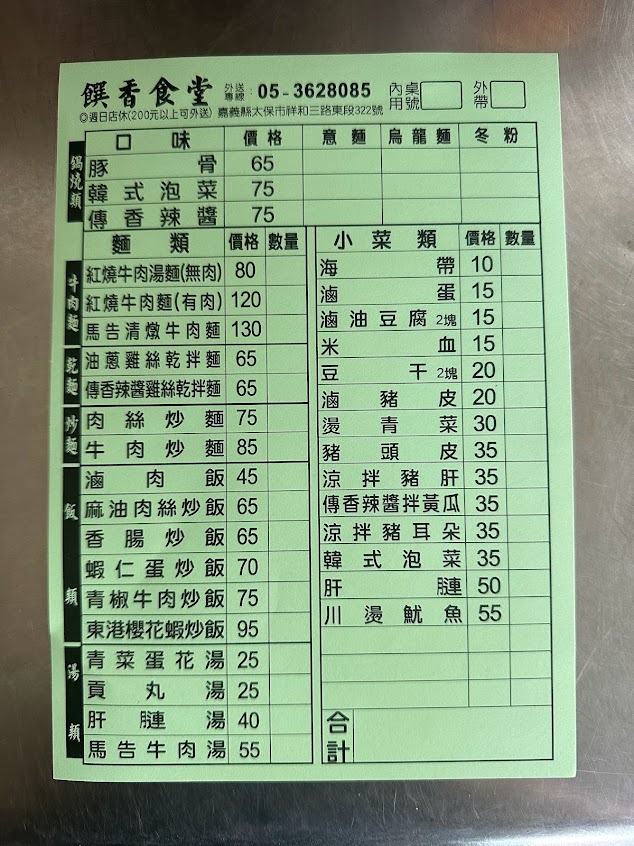 饌香食堂 外送專線:05-3628085 內用 桌號 外帶
◎週日店休(200元以上可外送) 嘉義縣太保市祥和三路東段322號
鍋燒類
口味 價格 意麵 烏龍麵 冬粉
豚骨 65
韓式泡菜 75
傳香辣醬 75
麵類 價格 數量
牛肉麵
紅燒牛肉湯麵(無肉) 80
紅燒牛肉麵(有肉) 120
馬告清燉牛肉麵 130
乾麵
油蔥雞絲乾拌麵 65
傳香辣醬雞絲乾拌麵 65
炒麵
肉絲炒麵 75
牛肉炒麵 85
飯類
滷肉飯 45
麻油肉絲炒飯 65
香腸炒飯 65
蝦仁蛋炒飯 70
青椒牛肉炒飯 75
東港櫻花蝦炒飯 95
湯類
青菜蛋花湯 25
貢丸湯 25
肝膁湯 40
馬告牛肉湯 55
小菜類 價格 數量
海帶 10
滷蛋 15
滷油豆腐2塊 15
米血 15
豆干2塊 20
滷豬皮 20
燙青菜 30
豬頭皮 35
涼拌豬肝 35
傳香辣醬拌黃瓜 35
涼拌豬耳朵 35
韓式泡菜 35
肝膁 50
川燙魷魚 55
合計